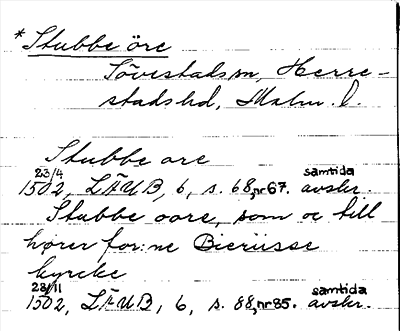 *Stubbe öre
Sövestads sn, Herre-
stads hd, Malm. l.
Stubbe ore
23/4 samtida
1502, LÄUB, 6, s. 68, nr 67. avskr.
Stubbe oore, som oc till
hører for:ne Bieriisse
kyrcke
23/11 samtida
1502, LÄUB, 6, s. 88, nr 85. avskr.